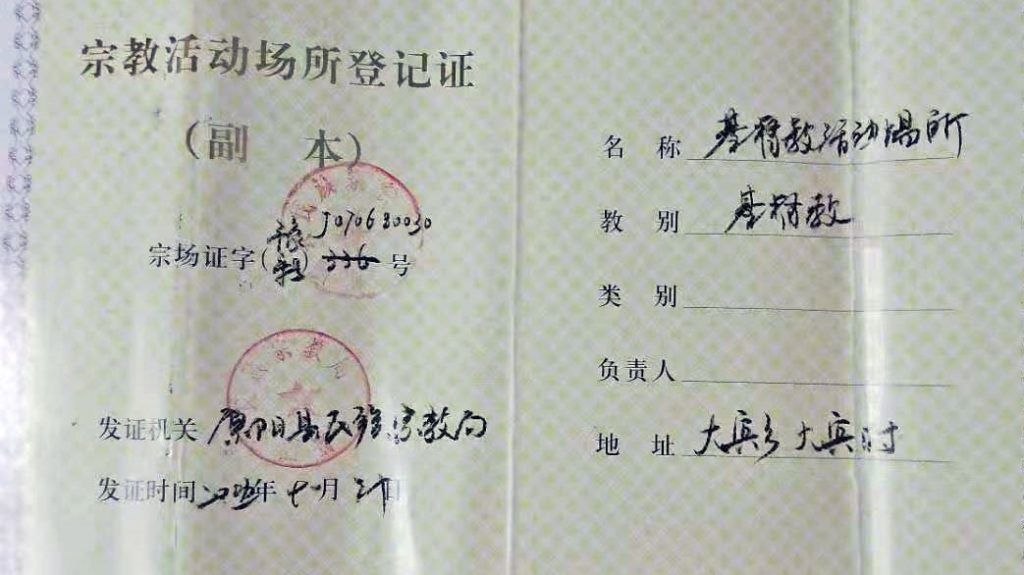 宗教活动场所登记证
（副 本）
宗场证字（豫 J070680030 号
发证机关 原阳县民族宗教局
发证时间 年十一月 日
名 称 基督教活动场所
教 别 基督教
类 别
负责人
地 址 大宾乡大宾村